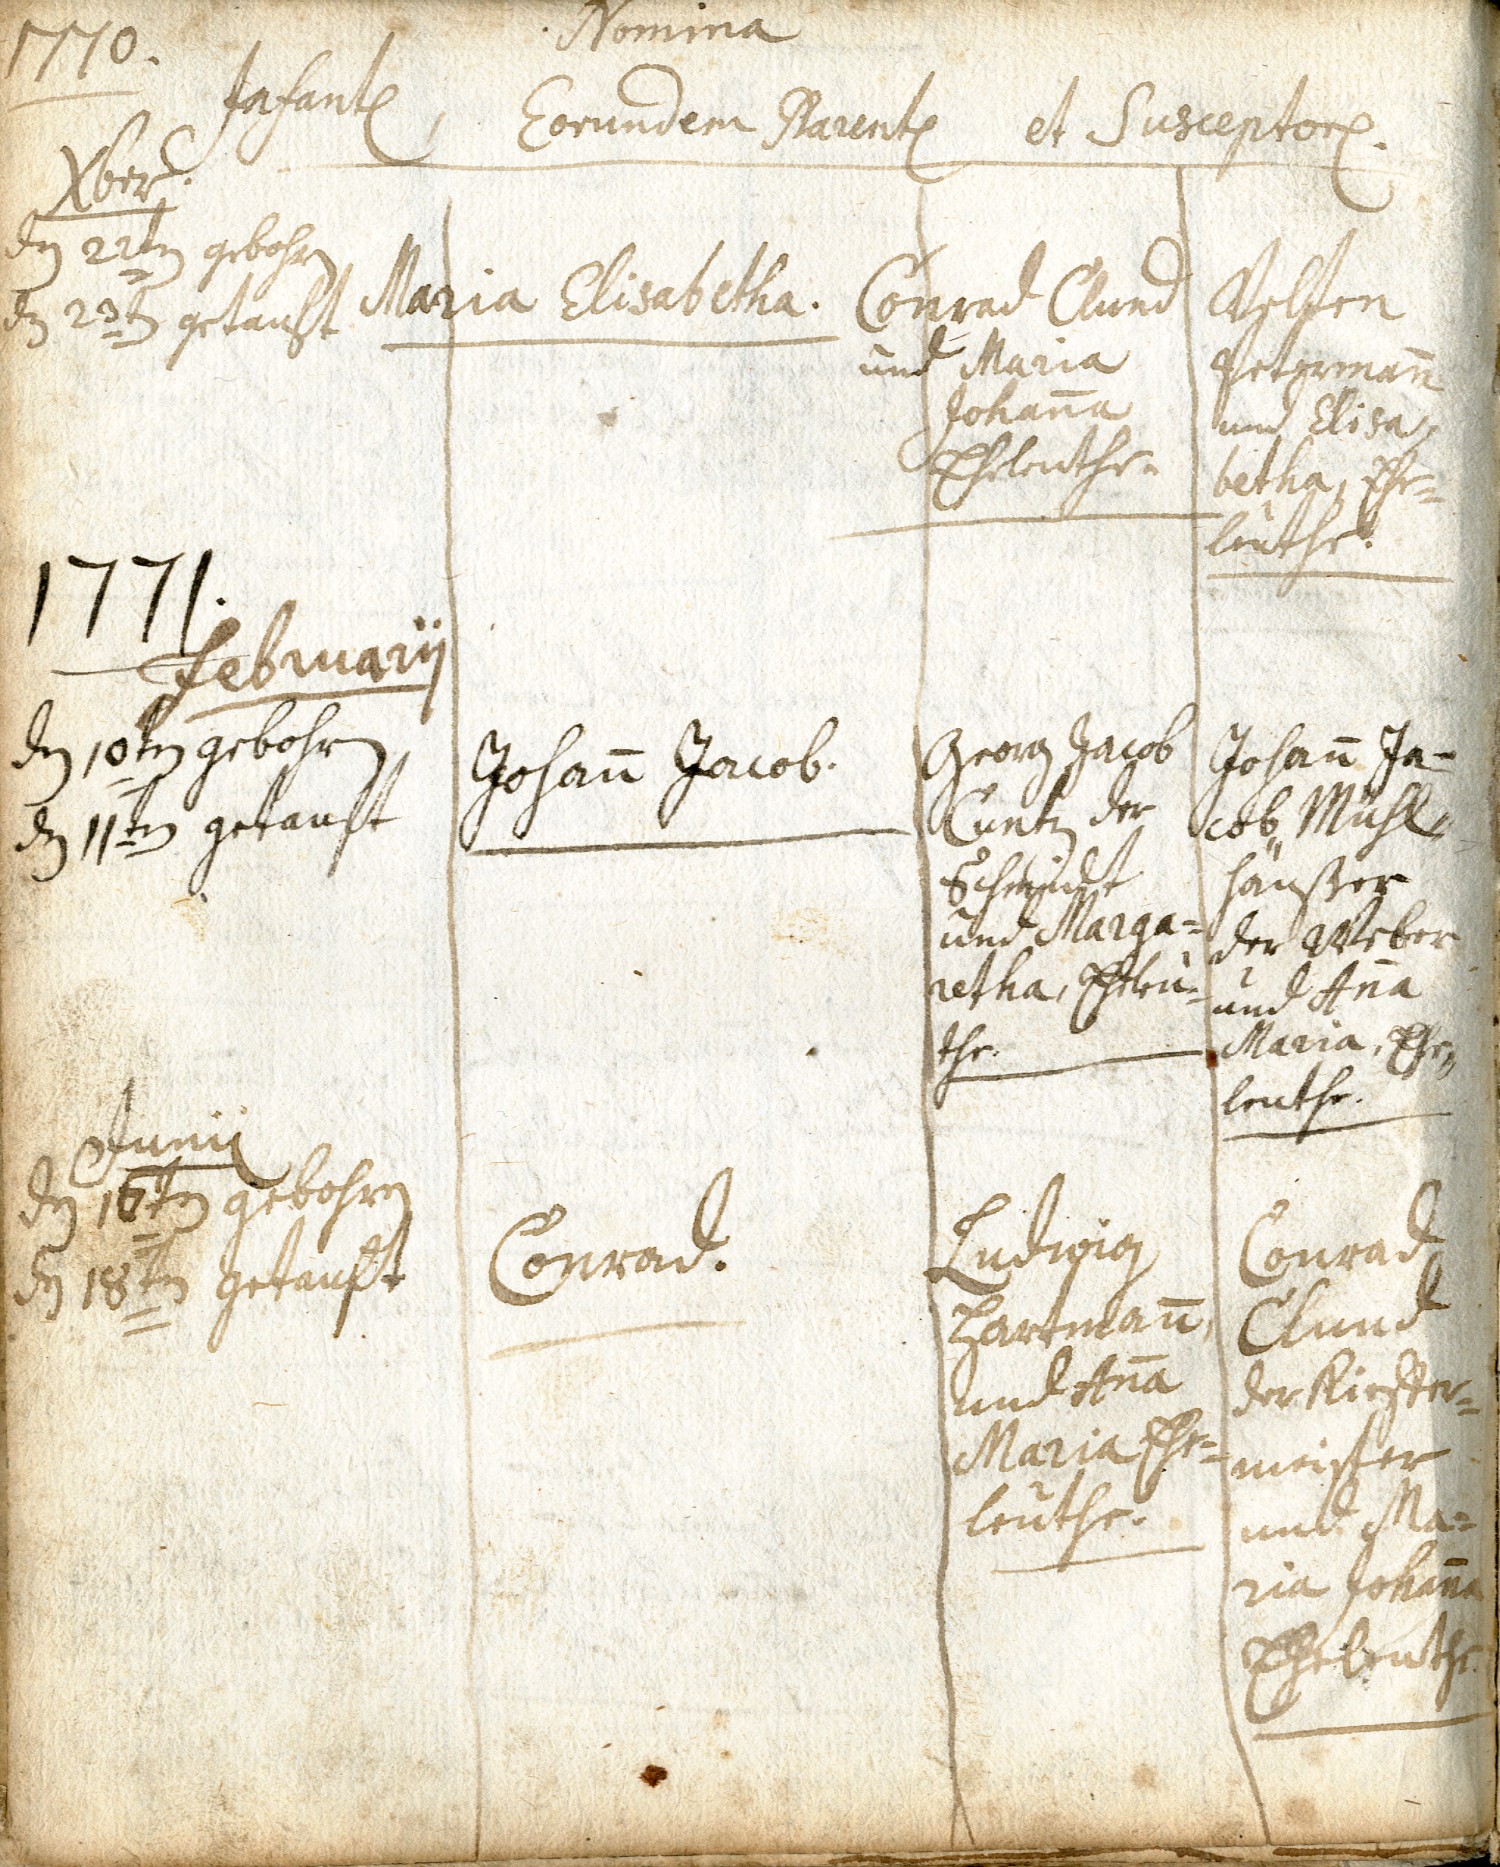 1770.
Nomina
Infant, Eorundem Parent et Susceptor.
Xber.
den 22ten gebohren
den 23ten getauft
Maria Elisabetha.
Conrad Clund
und Maria
Johan̄a
Eheleuthe.
Velten
Petermañ
und Elisa,
betha, Ehe=
leuthe.
1771.
Februarii
den 10ten gebohren
den 11ten getauft
Johan̄ Jacob.
Georg Jacob
Cuntz der
Schmidt
und Marga=
retha, Eheleu=
the.
Johan̄ Ja=
cob Mühl,
häußer
der Weber
und An̄a
Maria, Ehe,
leuthe.
Junii
den 16ten gebohren
den 18ten getauft
Conrad.
Ludwig
Hartman̄,
und An̄a
Maria Ehe=
leuthe.
Conrad
Clund
der
meister
und Ma=
ria Johan̄a
Eheleuthe.